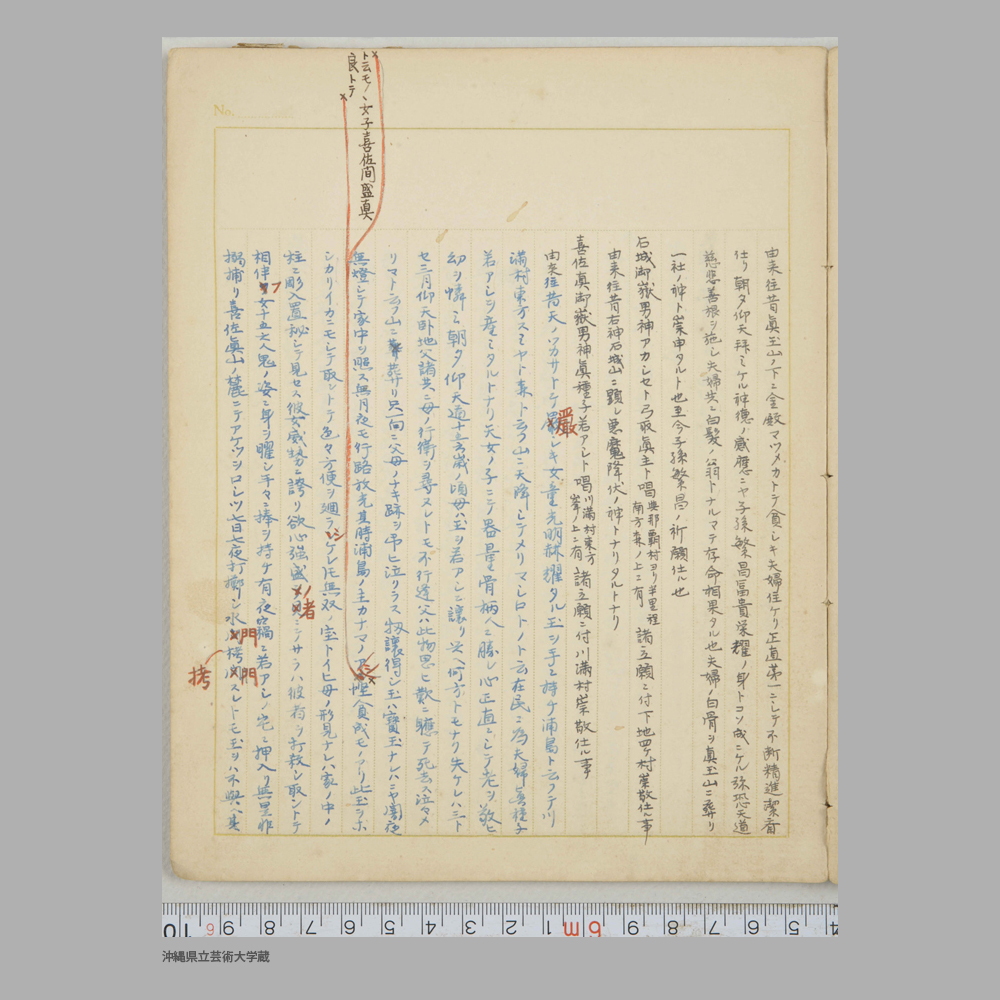 由来往昔眞玉山ノ下ニ金殿マツメカトテ貪シキ夫婦住ケリ正直第一ニシテ不断精進潔斎
仕リ朝夕仰天拜ミケル神徳ノ感應ニヤ子孫繁昌冨貴榮耀ノ身トコソ成ニケル弥恐天道
慈悲善根ヲ施シ夫婦共ニ白髪ノ翁トナルマテ存命相果タル也夫婦ノ白骨ヲ眞玉山ニ葬リ
一社ノ神ト崇申タルト也至今子孫繁昌ノ祈願仕ル也
石城御嶽男神アカシセト弓取眞主ト唱 與那覇村ヨリ半里程南方森ノ上ニ有 諸立願ニ付下地四ケ村崇敬仕ル事
由来往昔右神石城山ニ顕レ悪魔降伏ノ神トナリタルトナリ
喜佐真御嶽男神眞種子若アシト唱 川満村東方峯ノ上ニ有 諸立願ニ付川満村崇敬仕ル事
由来往昔天ノツカサトテ嚴シキ女童光明赫耀タル玉ヲ手ニ持チ浦島ト云フテ川
満村東方スミヤト森ト云フ山ニ天降シテメリマシロトノト云在民ニ為夫婦眞種子
若アシヲ産ミタルトナリ天女ノ子ニテ器量骨柄人ニ勝レ心正直ニシテ老ヲ敬ヒ
幼ヲ憐ミ朝夕仰天道十五六歳ノ頃母ハ玉ヲ若アシニ譲リ與ヘ何方トモナク失ケレハ三ト
セ三月仰天卧地父諸共ニ母ノ行衛ヲ尋スレトモ不行逢父ハ此物思ヒ歎ニ軈テ死去ス泣々メ
リマト云フ山ニ葬リ只向ニ父母ノナキ跡ヲ吊ヒ泣クラス扨譲得シ玉ハ寳玉ナレハニヤ闇夜
無燈シテ家中ヲ照ス無月夜モ行路放光其時浦島ノ主カナマノア
ト云モノヽ女子喜佐間盛眞
良トテ
性貪成モノアリ此玉ヲホ
シカリイカニモシテ取ントテ色々方便ヲ廻ラシケレ圧無双ノ宝トイヒ母ノ形見ナレハ家ノ中ノ
柱ニ彫入置秘シテ見セス彼女威勢ニ誇リ欲心強盛ノ者ニテサラハ彼者ヲ打殺シ取ントテ
相伴フ女十五六人鬼ノ姿ニ身ヲ曜シ手々ニ捧ヲ持テ有夜窃ニ若アシノ宅ニ押入リ無里非
搦捕リ喜佐眞山ノ麓ニテアケツヲロシツ七日七夜打擲シ水門拷門スレトモ玉ヲハ不與ヘ其
嚴
拷
No.
沖縄県立芸術大学蔵